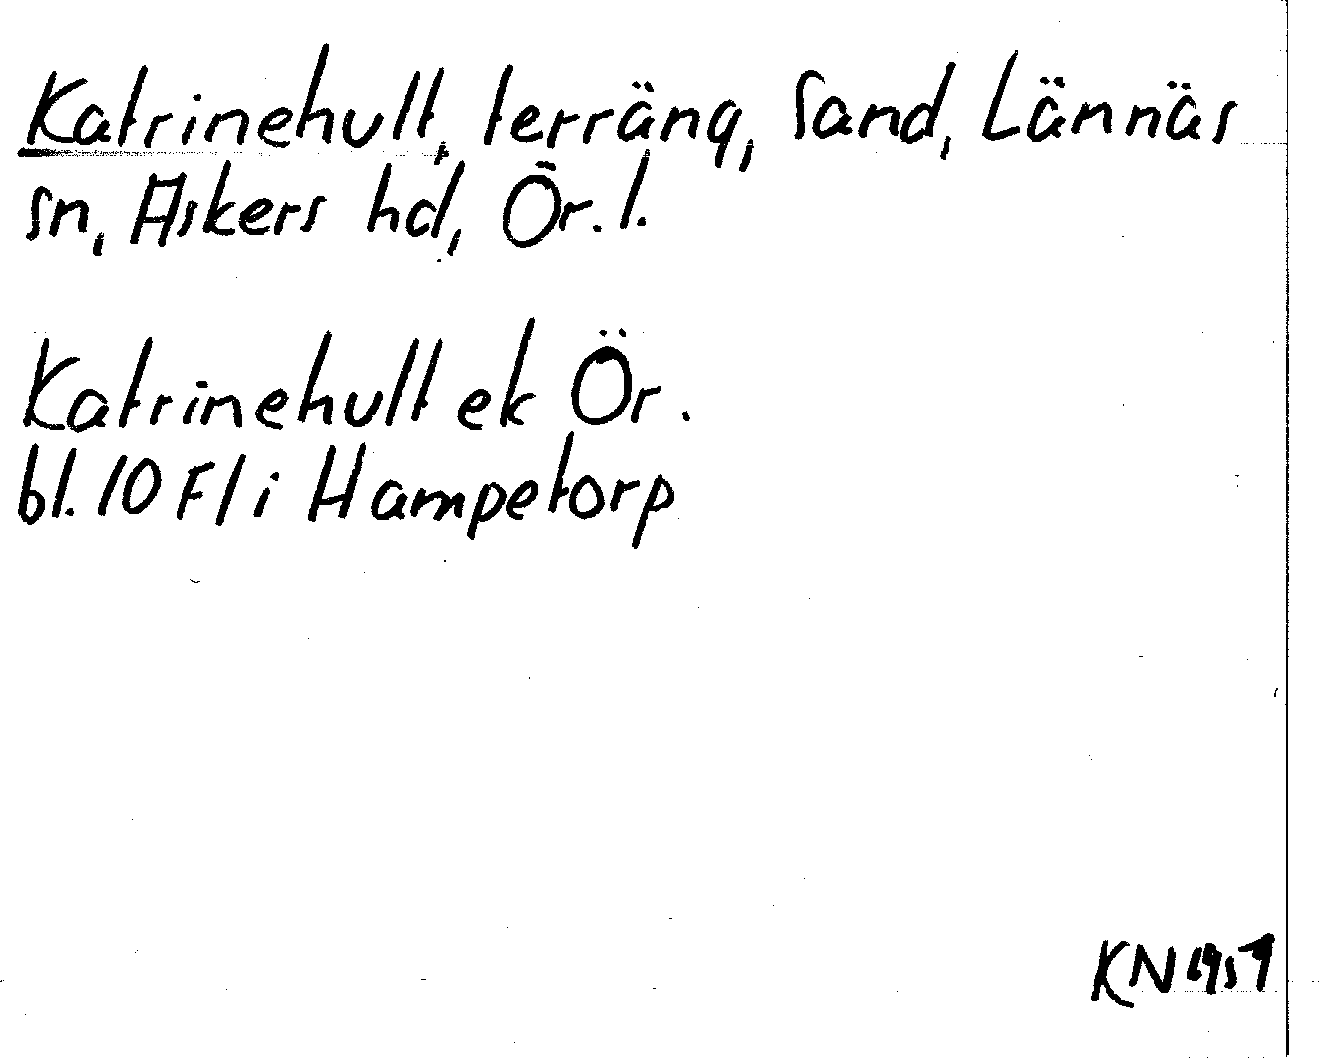 Katrinehult, terräng, Sand, Lännäs
sn, Askers hd, Ör. l.
Katrinehult ek Ör.
bl. 10 F/i Hampetorp
KN